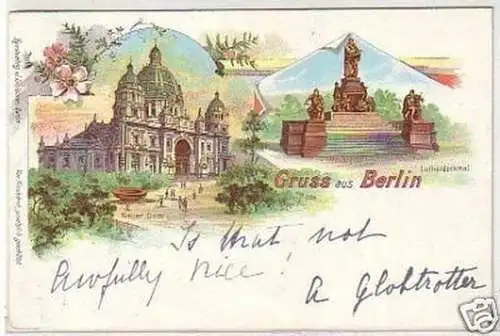 Gruss aus Berlin
Neuer Dom
Lutherdenkmal
Is that not
Awfully nice!
A Globtrotter
ebay